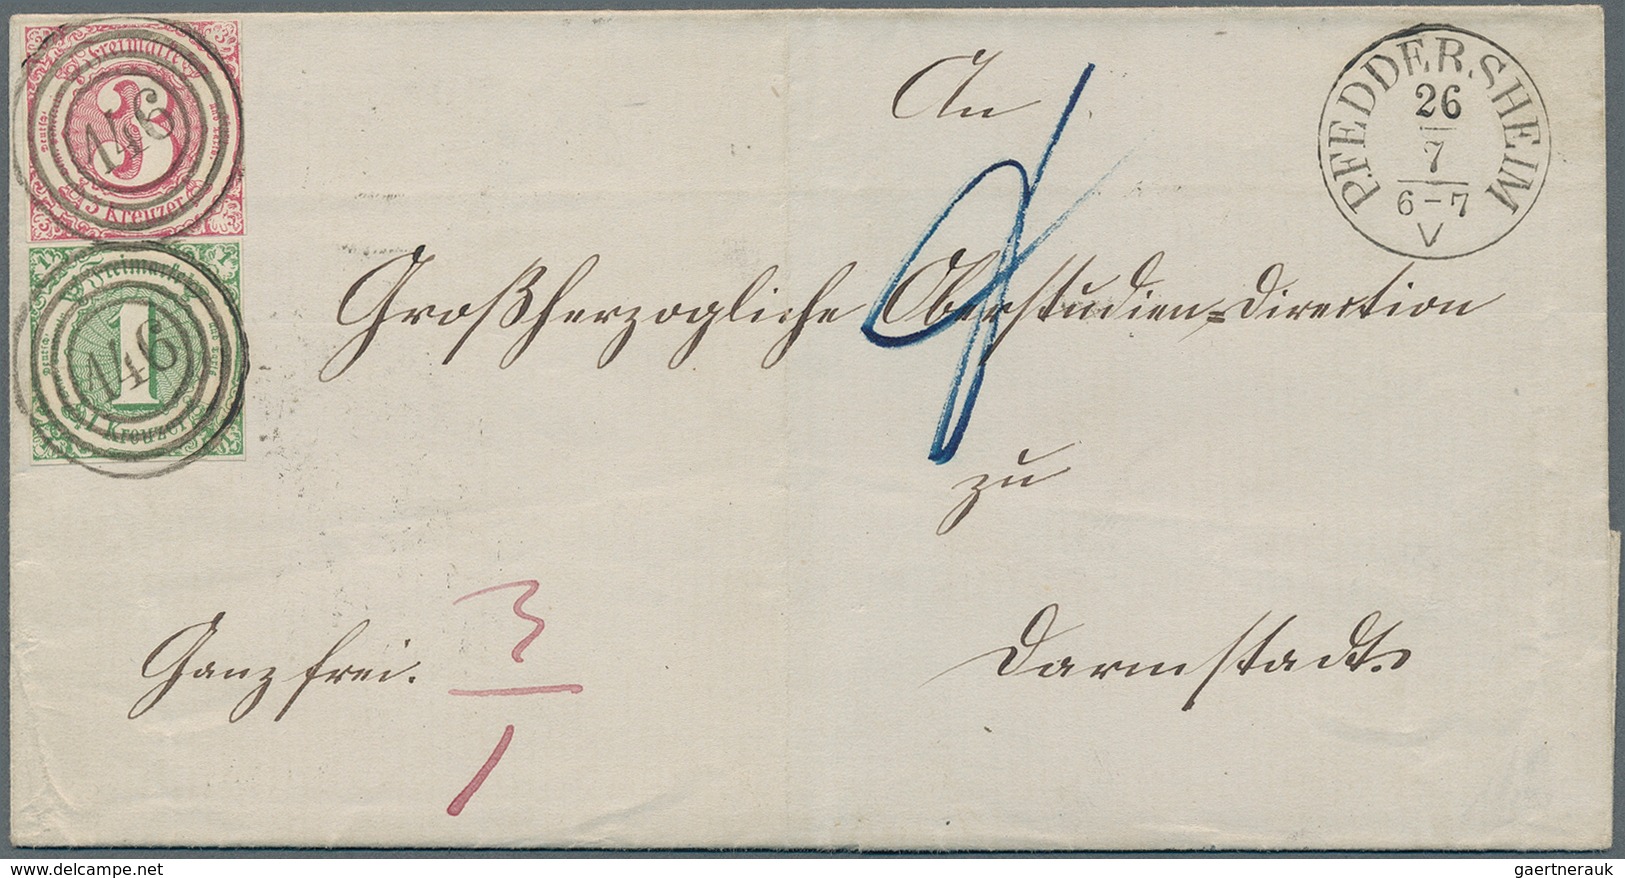 Freimarke
3
3 Kreuzer
146
Freimarke
1
1 Kreuzer
146
PFEDDERSHEIM
26
7
6-7
V
An
Großherzogliche Oberstudien=Direction
zu
Darmstadt.
Ganz frei.
3
1
gaertnerauk